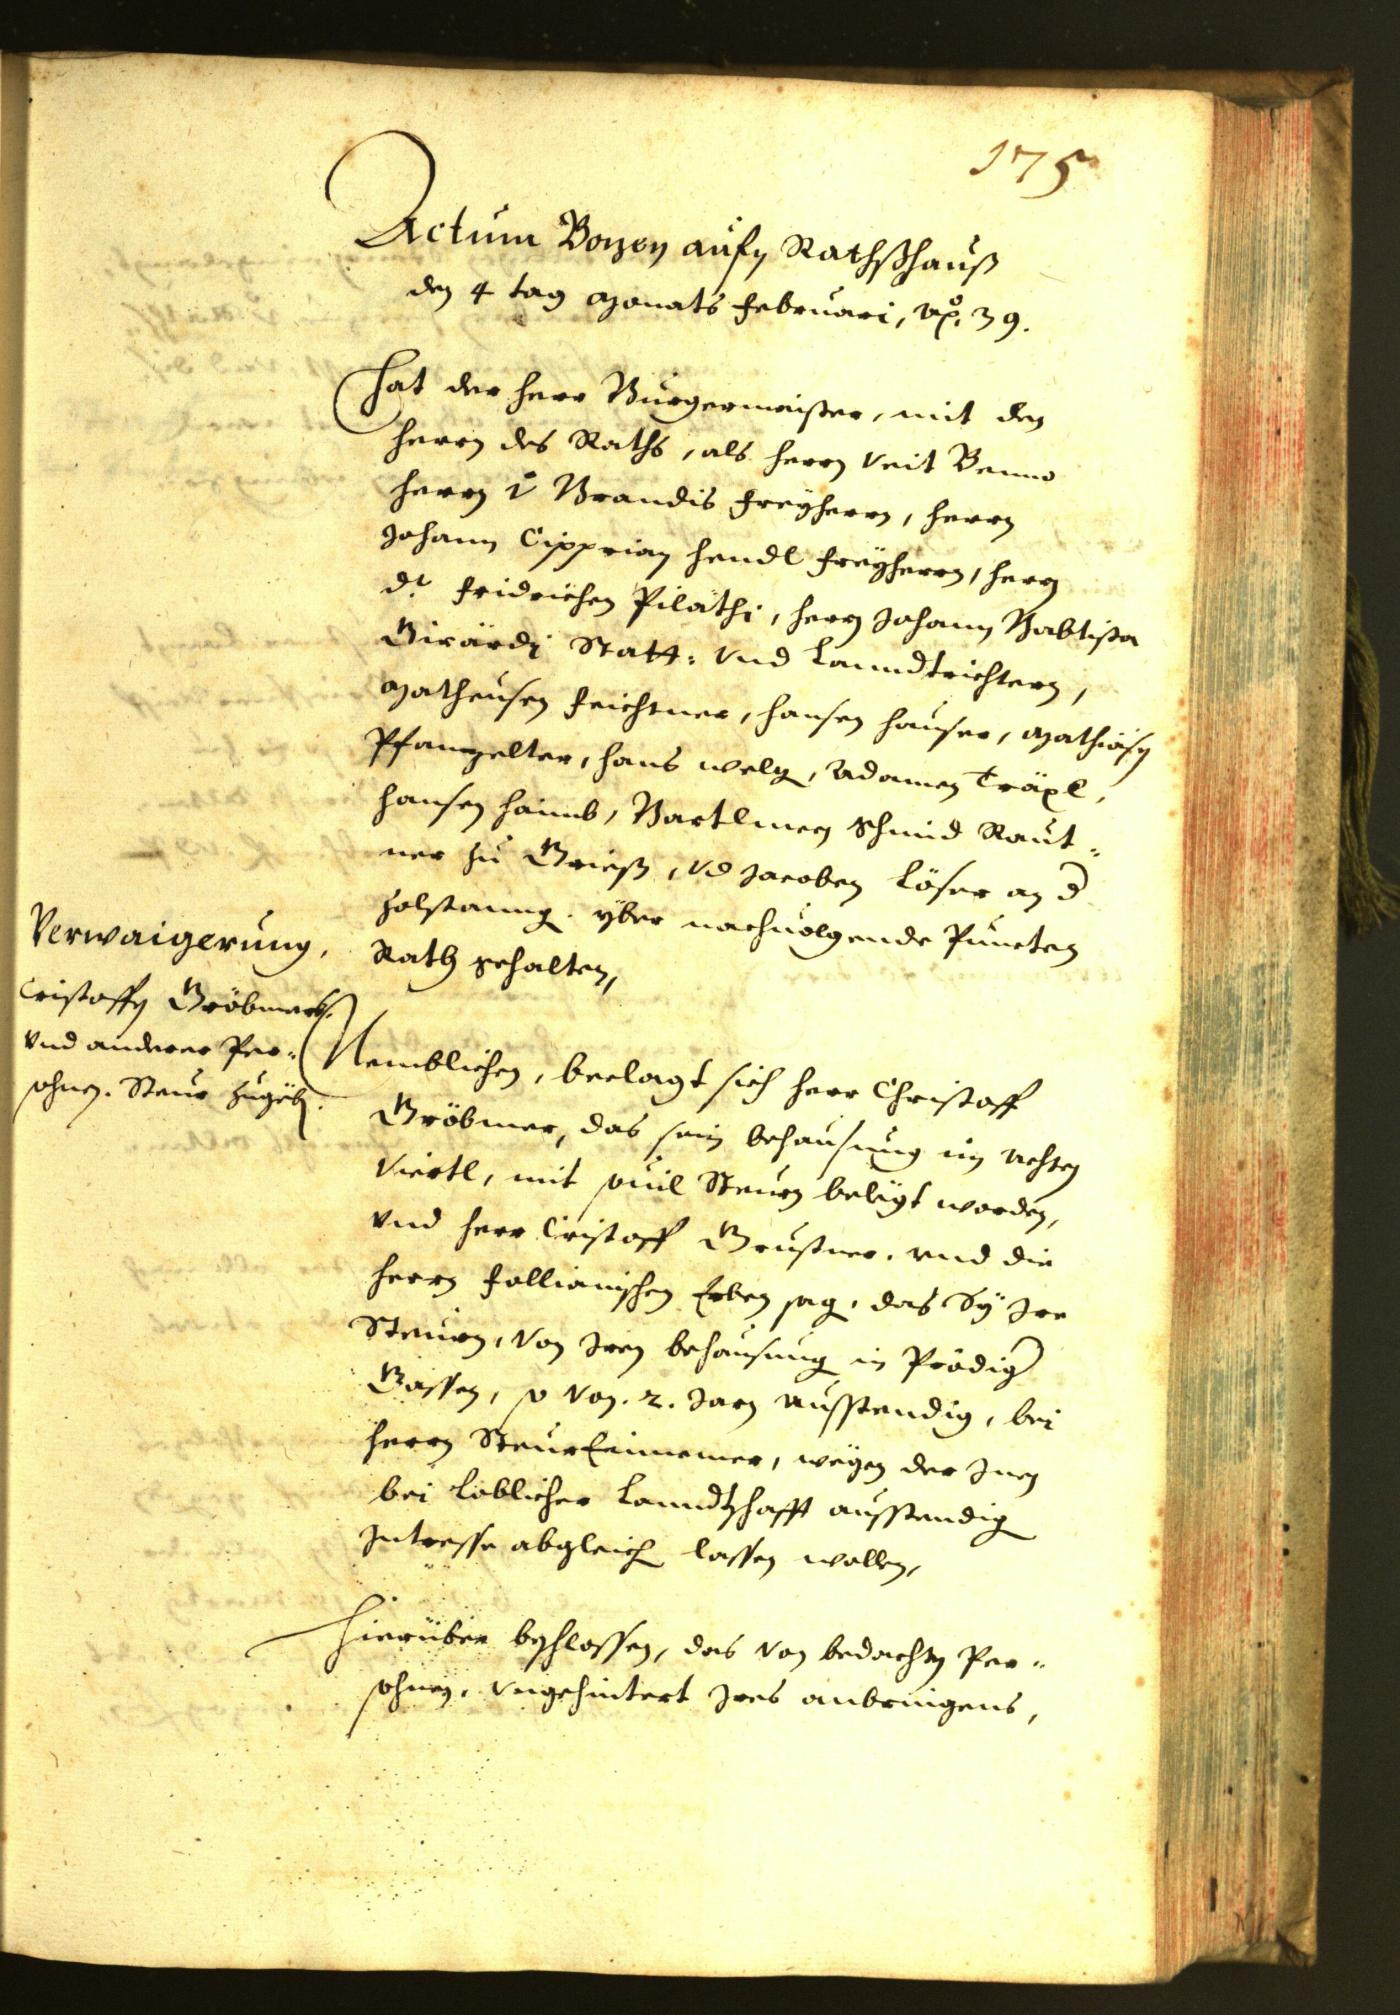 175
Actum Bozen aufm Rathßhauß
den 4 tag Monats Februari, Ao. 39.
Hat der herr Burgermaister, mit den
herrn des Raths, als herrn Veit Benno
herrn v Brandis Freyherrn, herrn
Johann Cipprian Hendl Freyherrn, herrn
Dr. Fridrichen Pilathi, herrn Johann Babtista
Girardi Statt- und Lanndtrichtern,
Matheusen Feichtner, Hansen Hauser, Mathiasen
Pfanzelter, Hans Welz, Adamen Träxl,
Hansen Haimb, Bartlmeen Schmid Raut-
ner zu Grieß, vnd Jacoben Löser an d
Zolstanng. yber nachuolgende Puncten
Rath gehalten,
Verwaigerung,
Cristoffen Gröbmers
vnd anderer Per-
sohnen. Steur zugeben.
Nemblichen, beclagt sich herr Christoff
Gröbmer, das sein behausung im Achten
Viertl, mit souil Steurn belegt worden,
vnd herr Cristoff Grustner. vnd die
herrn Follianischen Erben sag, das Sy Ire
Steurn, von Iren behausung in Prödiger
Gassen, so von .2. Jarn ausstendig, bei
herrn Steur Einnemer, wegen der Inen
bei Löblicher Lanndtschafft ausstendig
Interesse abgleich lassen wollen,
Hierüber beschlossen, das von bedachten Per-
sohnen, vngehintert Ires anbringens,